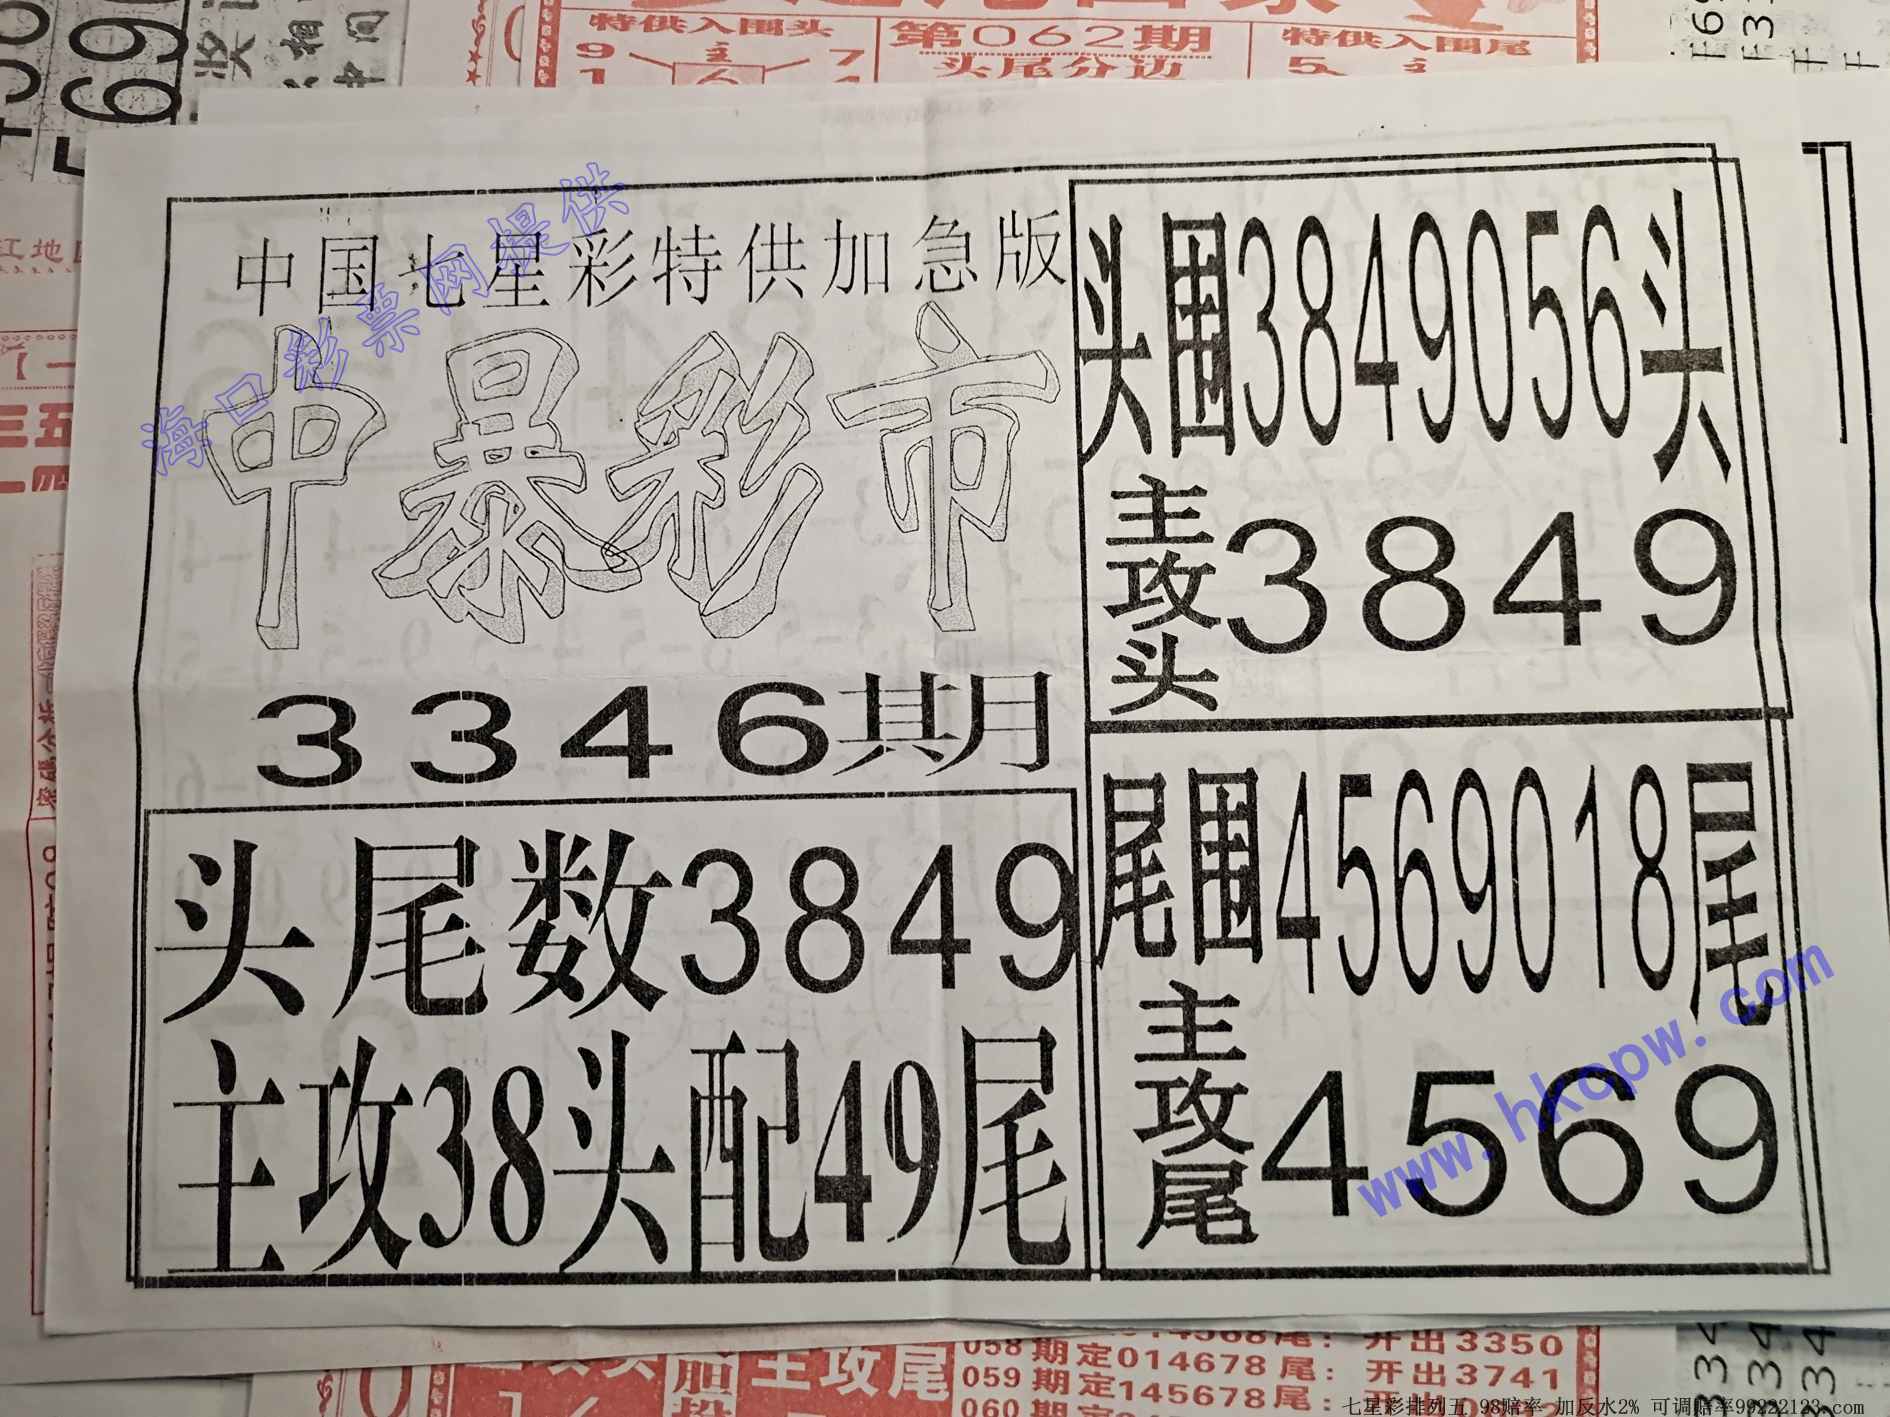 特供入围头
第062期
特供入围尾
头尾分边
中国七星彩特供加急版
中暴彩市
3346期
头尾数3849
主攻38头配49尾
头围3849056头
主攻头3849
尾围4569018尾
主攻尾4569
海口彩票网提供
www.hkcpw.com
主攻尾
058期定014568尾：开出3350
059期定014678尾：开出3741
060期定145678尾：开出
七星彩排列五 98赔率 加反水2% 可调赔率99222123.com